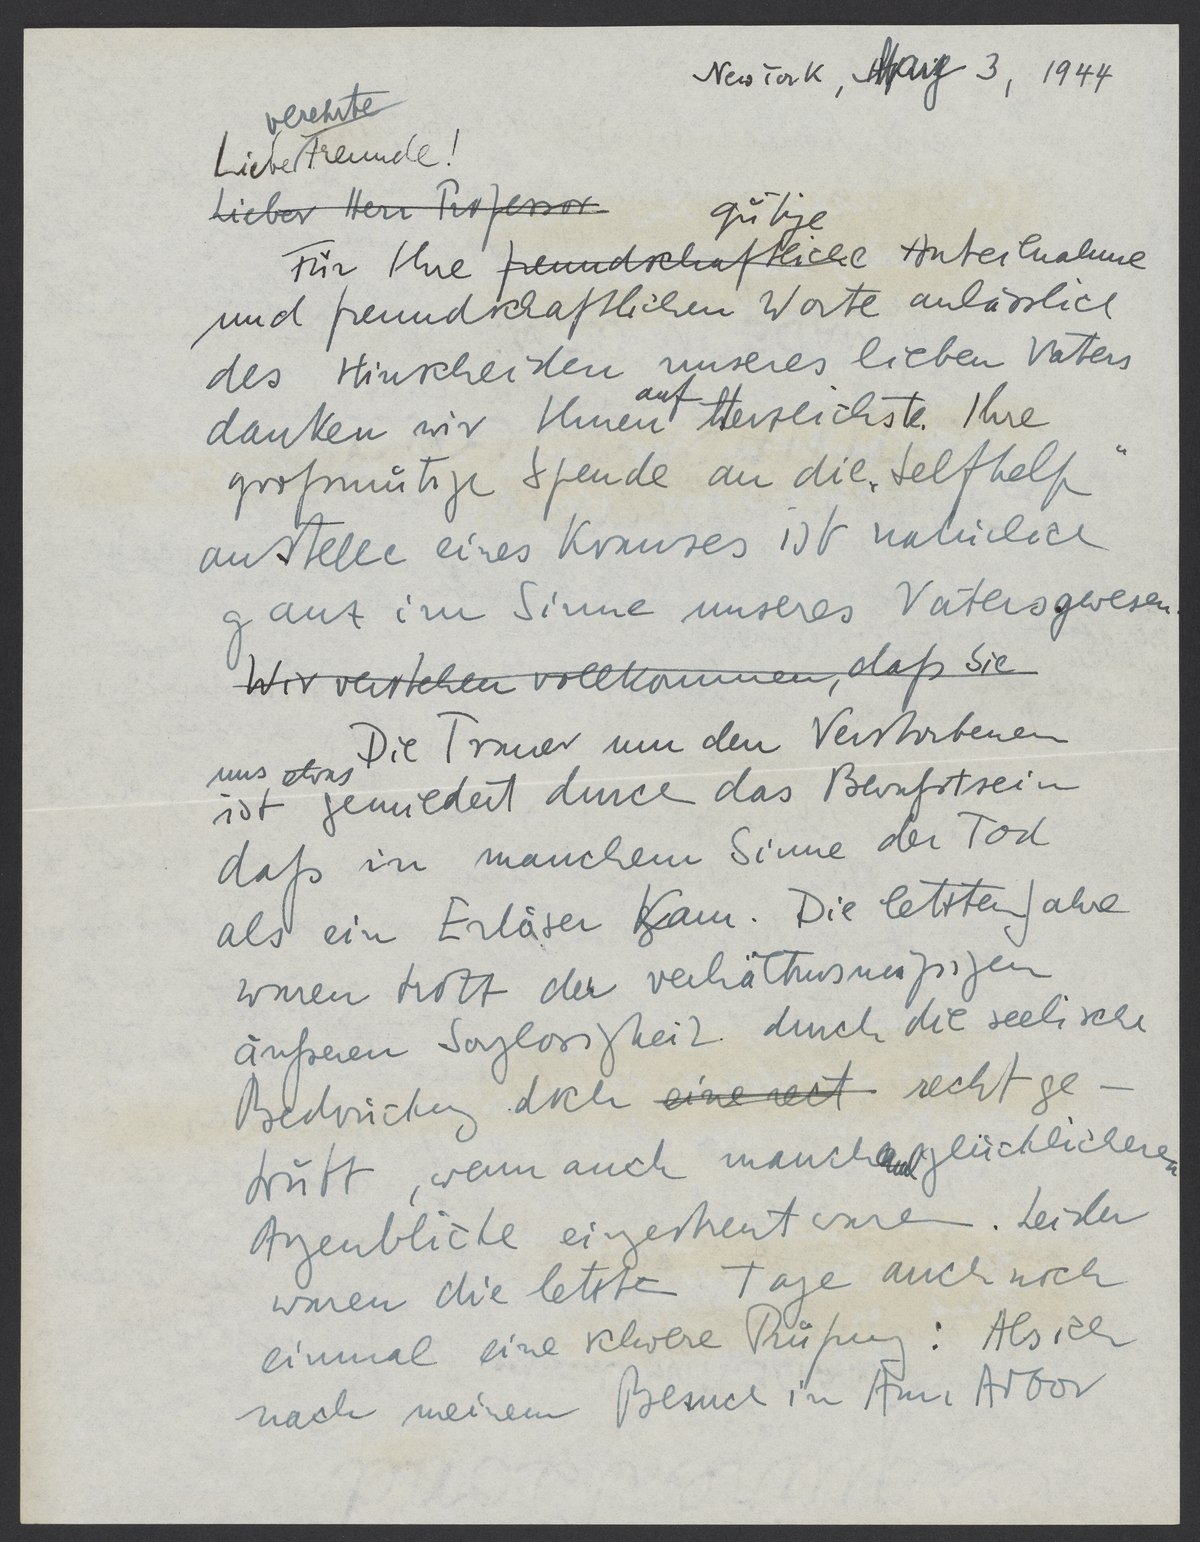 New York, May 3, 1944
verehrte
Liebe Freunde!
Lieber Herr Professor
gütige
Für Ihre freundschaftliche Anteilnahme
und freundschaftlichen Worte anlässlich
des Hinscheiden unseres lieben Vaters
danken wir Ihnen auf Herzlichste. Ihre
großmütige Spende an die „Selfhelp“
anstelle eines Kranzes ist natürlich
ganz im Sinne unseres Vaters gewesen.
Wir verstehen vollkommen, daß Sie
Die Trauer um den Verstorbenen
uns etwas
ist gemildert durch das Bewußtsein
daß in manchem Sinne der Tod
als ein Erlöser kam. Die letzten Jahre
waren trotz der verhältnismäßigen
äußeren Sorglosigkeit durch die seelische
Bedrückung doch eine recht recht ge-
trübt, wenn auch manche glücklicheren
Augenblicke eingestreut waren. Leider
waren die letzten Tage auch noch
einmal eine schwere Prüfung: Als ich
nach meinem Besuch in Ann Arbor